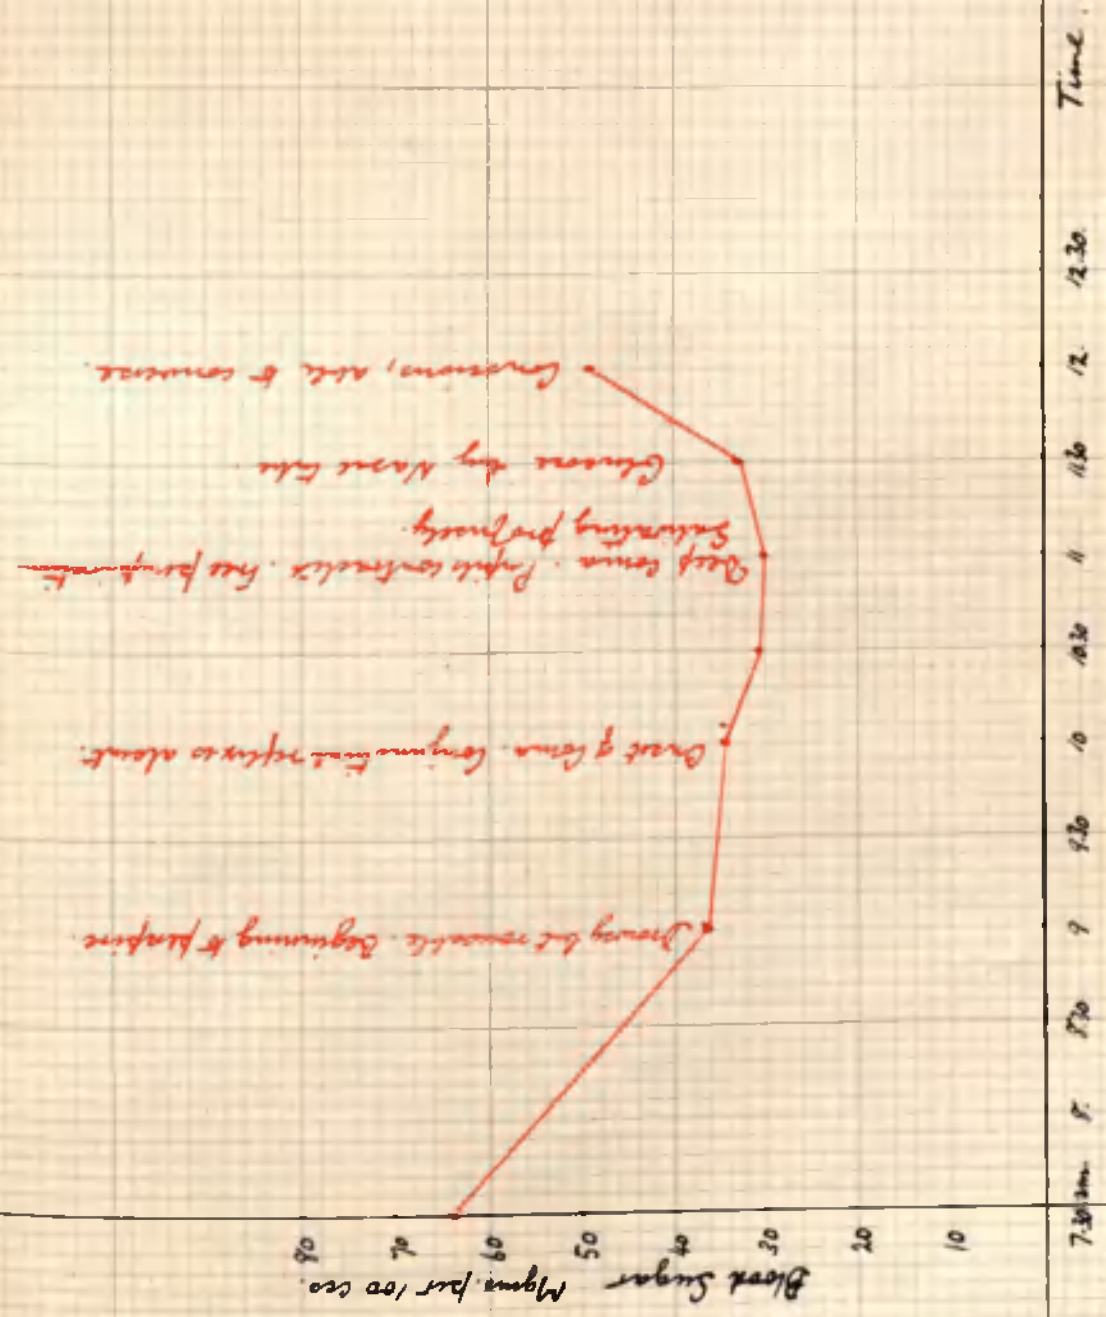 Blood Sugar Mgms. per 100 ccs.
80
70
60
50
40
30
20
10
7.30 am. 8. 8.30 9 9.30 10 10.30 11 11.30 12. 12.30. Time.
Drowsy but rouseable. Beginning to perspire
Onset of Coma. Conjunctival reflexes absent.
Deep coma. Pupils contracted. Free perspiration
Salivating profusely.
Glucose by Nasal tube.
Conscious, able to converse.